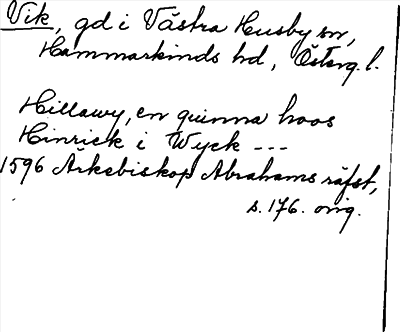 Vik, gd i Västra Husby sn,
Hammarkinds hd, Österg. l.
Hillawy, en quinna hoos
Hinrick i Wyck ---
1596 Ärkebiskop Abrahams räfst,
s. 176. orig.